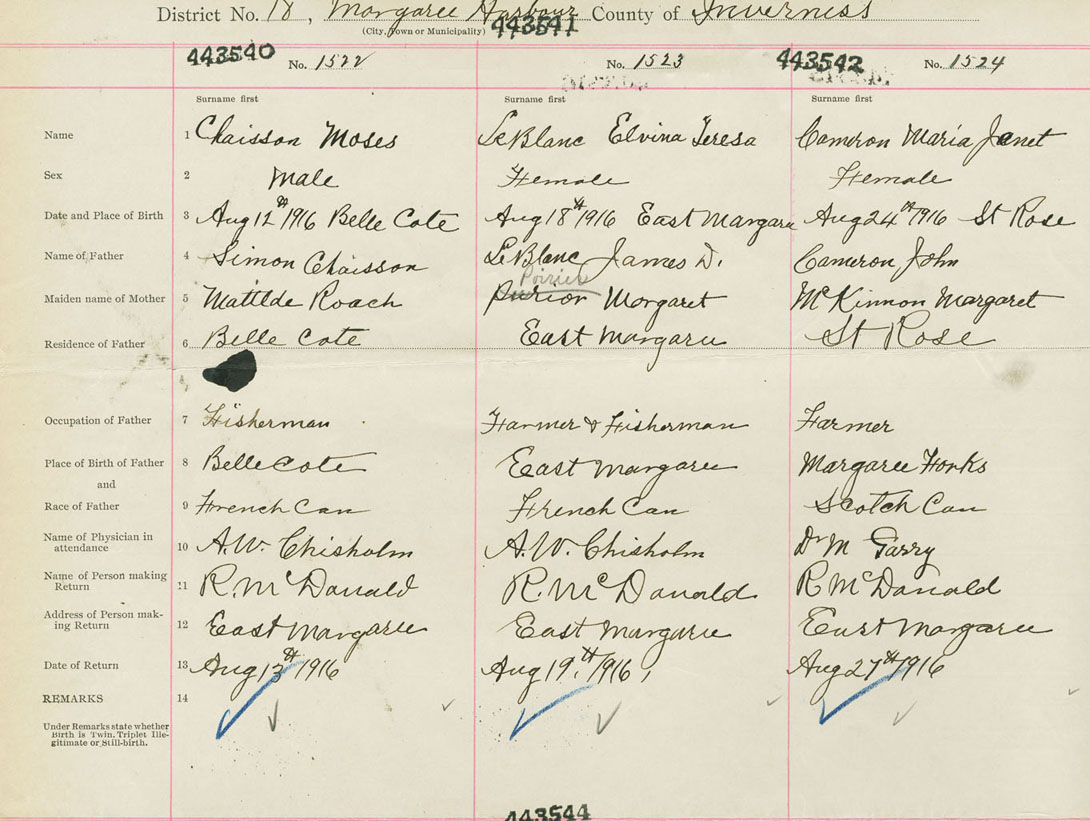 District No. 18, Margaree Harbour County of Inverness
(City, Town or Municipality)
443540 443541 443542
No. 1522 No. 1523 No. 1524
Surname first Surname first Surname first
Name 1 Chaisson Moses LeBlanc Elvina Teresa Cameron Maria Janet
Sex 2 Male Female Female
Date and Place of Birth 3 Aug 12th 1916 Belle Cote Aug 18th 1916 East Margaree Aug 24th 1916 St Rose
Name of Father 4 Simon Chaisson LeBlanc James D. Cameron John
Poirier
Maiden name of Mother 5 Matilde Roach Margaret McKinnon Margaret
Residence of Father 6 Belle Cote East Margaree St Rose
Occupation of Father 7 Fisherman Farmer & Fisherman Farmer
Place of Birth of Father 8 Belle Cote East Margaree Margaree Forks
and
Race of Father 9 French Can French Can Scotch Can
Name of Physician in
attendance 10 A.W. Chisholm A.W. Chisholm Dr M Garry
Name of Person making
Return 11 R. McDanald R. McDanald R McDanald
Address of Person mak-
ing Return 12 East Margaree East Margaree East Margaree
Date of Return 13 Aug 13th 1916 Aug 19th, 1916, Aug 27th 1916
REMARKS 14
Under Remarks state whether
Birth is Twin, Triplet Ille-
gitimate or Still-birth.
443544